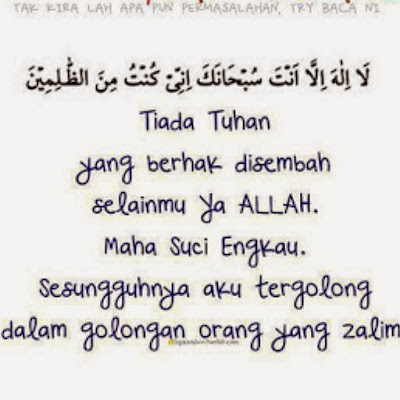 TAK KIRA LAH APA PUN PERMASALAHAN, TRY BACA NI
لَا اِلٰهَ اِلَّا اَنْتَ سُبْحَانَكَ اِنِّيْ كُنْتُ مِنَ الظّٰلِمِيْنَ
Tiada Tuhan
yang berhak disembah
selainmu Ya ALLAH.
Maha Suci Engkau.
Sesungguhnya aku tergolong
dalam golongan orang yang zalim